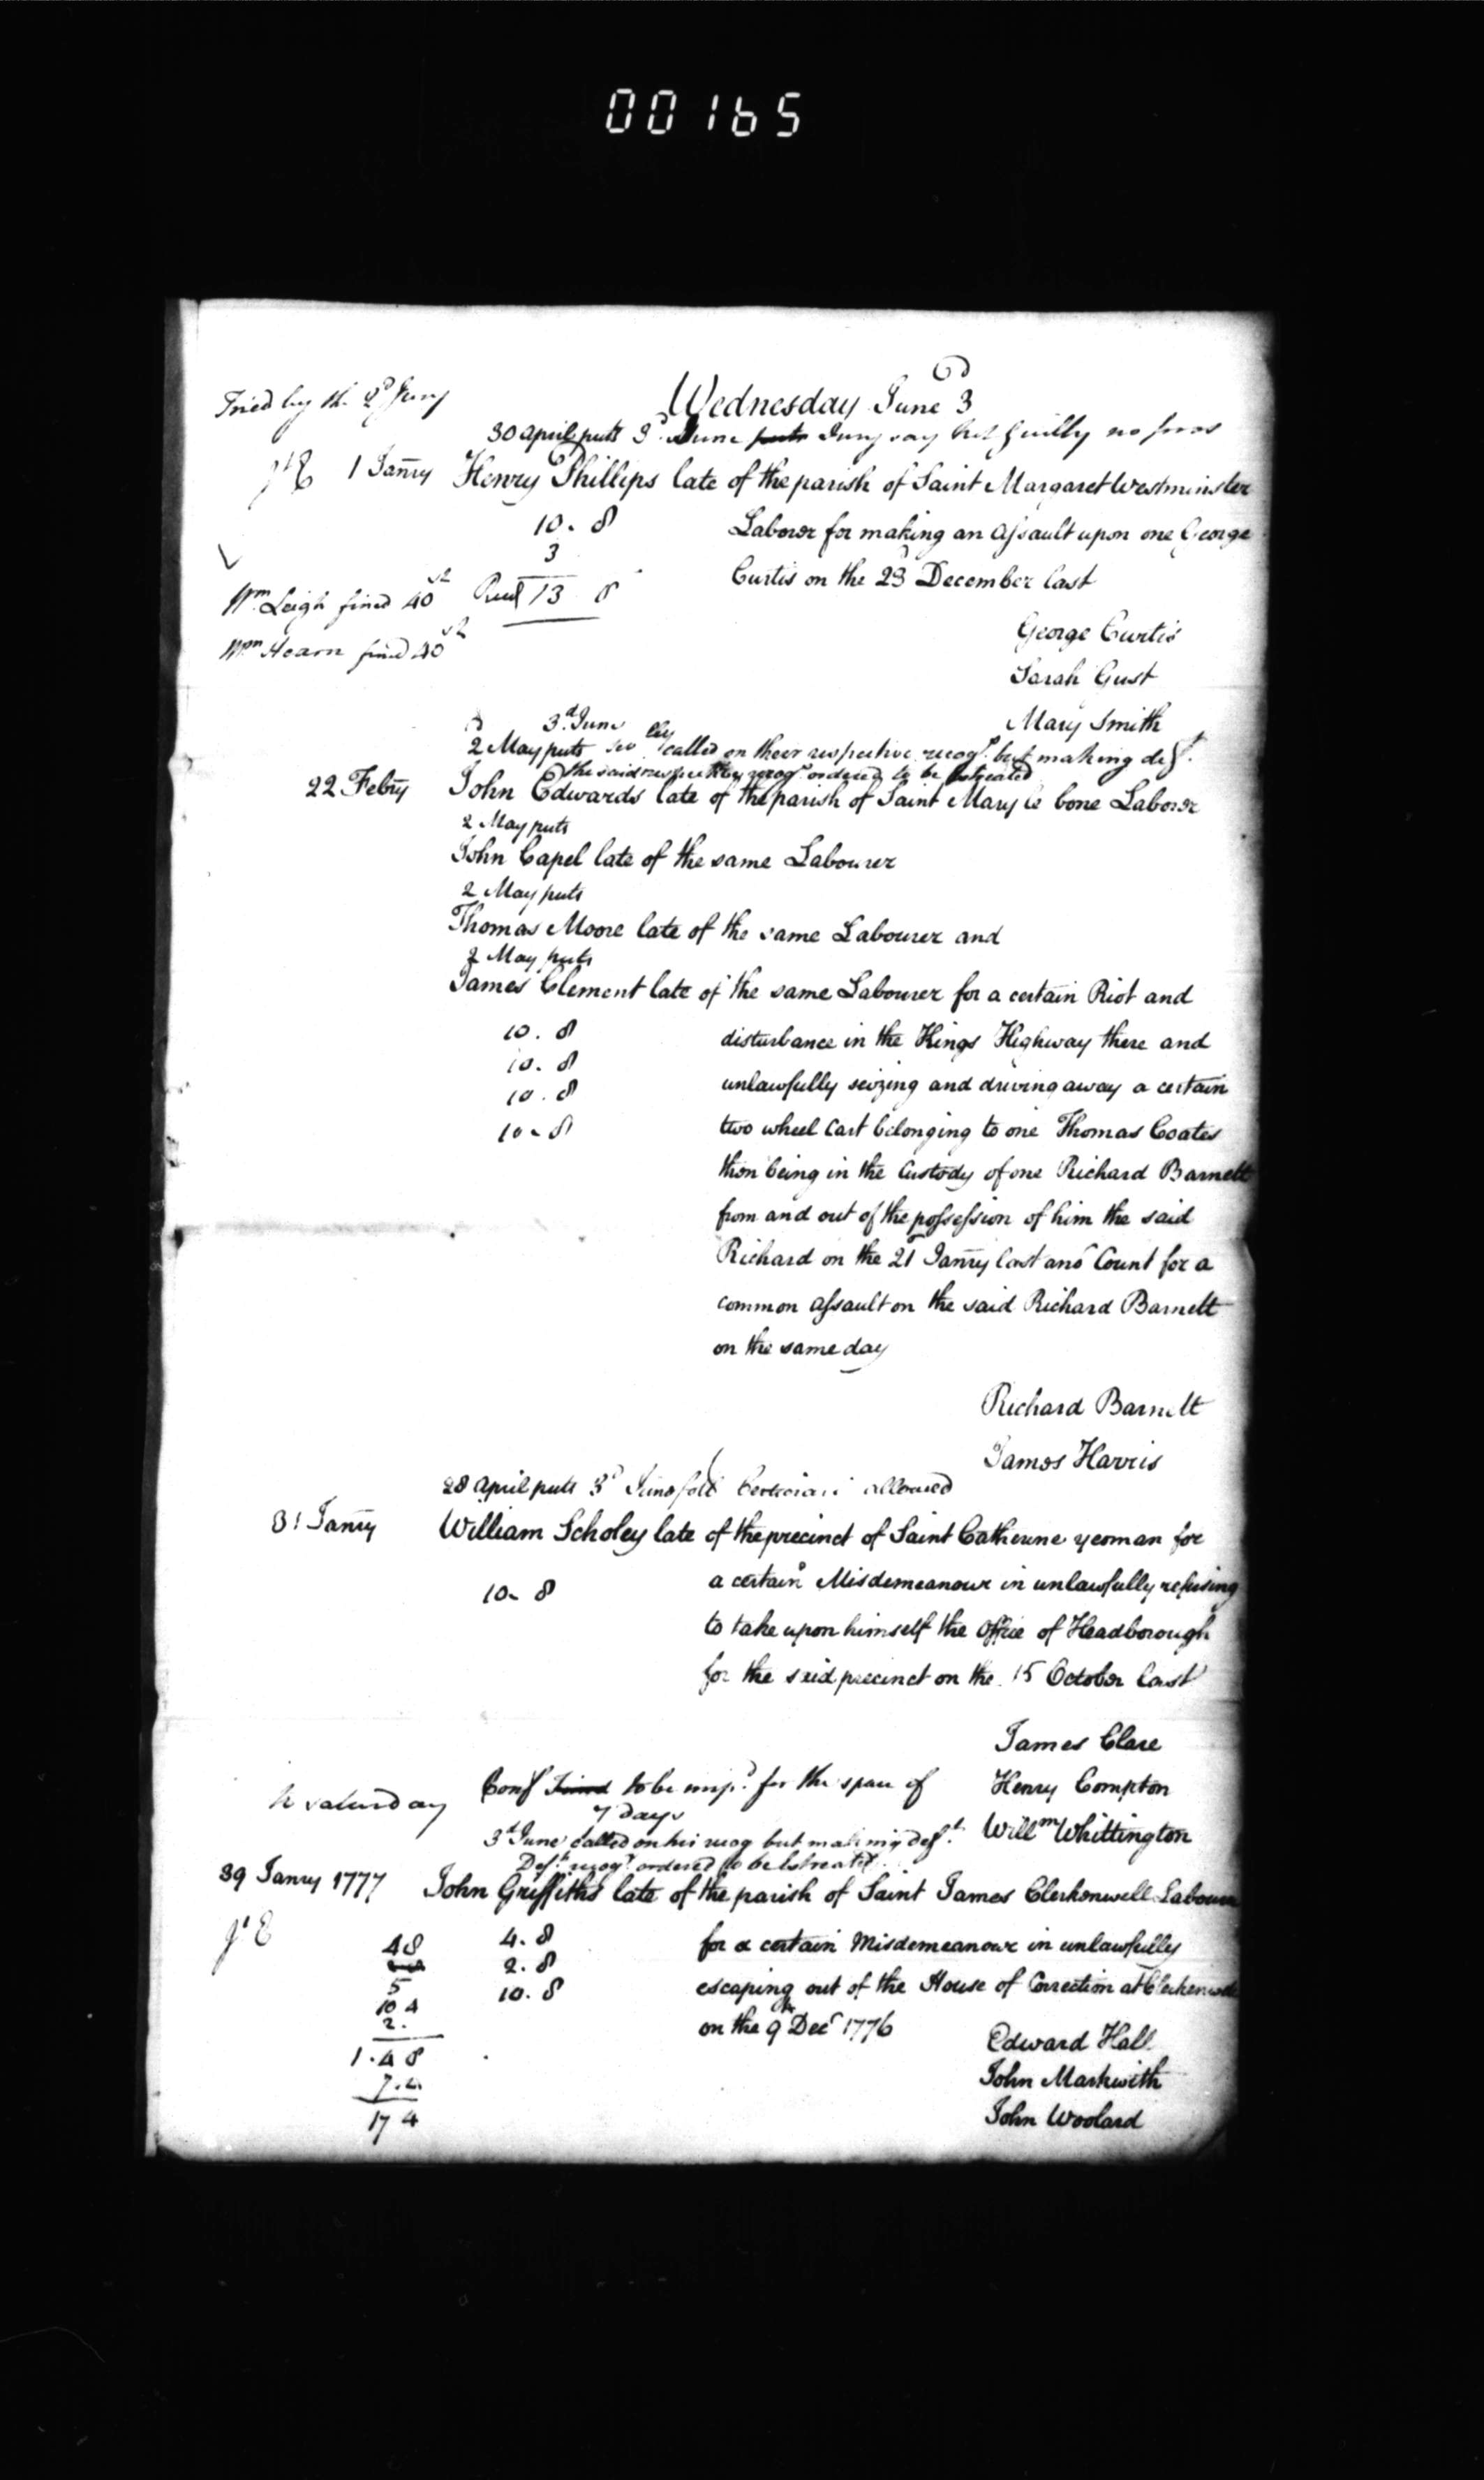 00165
Wednesday June 3d
Tried by the 2d Jury
30 April puts 3d June puts Jury say not Guilty no
1 Janry Henry Phillips late of the parish of Saint Margaret Westminster
10. 8 Laborer for making an Assault upon one George
3
Curtis on the 23d December last
Wm Leigh fined 40 sh
13 8
Wm Hearn fined 40 sh
George Curtis
Sarah Gust
Mary Smith
3d June
2 May puts sevlly called on their respective recogs but making deft
the said respective recogs ordered to be Estreated
22 Febry John Edwards late of the parish of Saint Mary le bone Laborer
2 May puts
John Capel late of the same Labourer
2 May puts
Thomas Moore late of the same Labourer and
2 May puts
James Clement late of the same Labourer for a certain Riot and
10. 8 disturbance in the Kings Highway there and
10. 8
unlawfully seizing and driving away a certain
10. 8
10. 8 two wheel Cart belonging to one Thomas Coates
then being in the Custody of one Richard Barnett
from and out of the possession of him the said
Richard on the 21 Janry last anor Count for a
common Assault on the said Richard Barnett
on the same day
Richard Barnett
James Harris
28 April puts 3d June Certiorari allowed
31 Janry William Scholey late of the precinct of Saint Catherine yeoman for
10. 8 a certain Misdemeanour in unlawfully refusing
to take upon himself the Office of Headborough
for the said precinct on the 15 October last
James Clare
Henry Compton
Willm Whittington
Saturday Conf Fined to be imp.d for the space of
7 days
3d June Called on his recog but making deft
Defts recogs ordered to be Estreated
39 Janry 1777 John Griffiths late of the parish of Saint James Clerkenwell Labourer
48 4. 8 for a certain Misdemeanour in unlawfully
2. 8
5 10. 8 escaping out of the House of Correction at Clerkenwell
10 4
2. on the 9th Decr 1776
1. 4 8
7. 4
17 4
Edward Hall
John Markwith
John Woolard